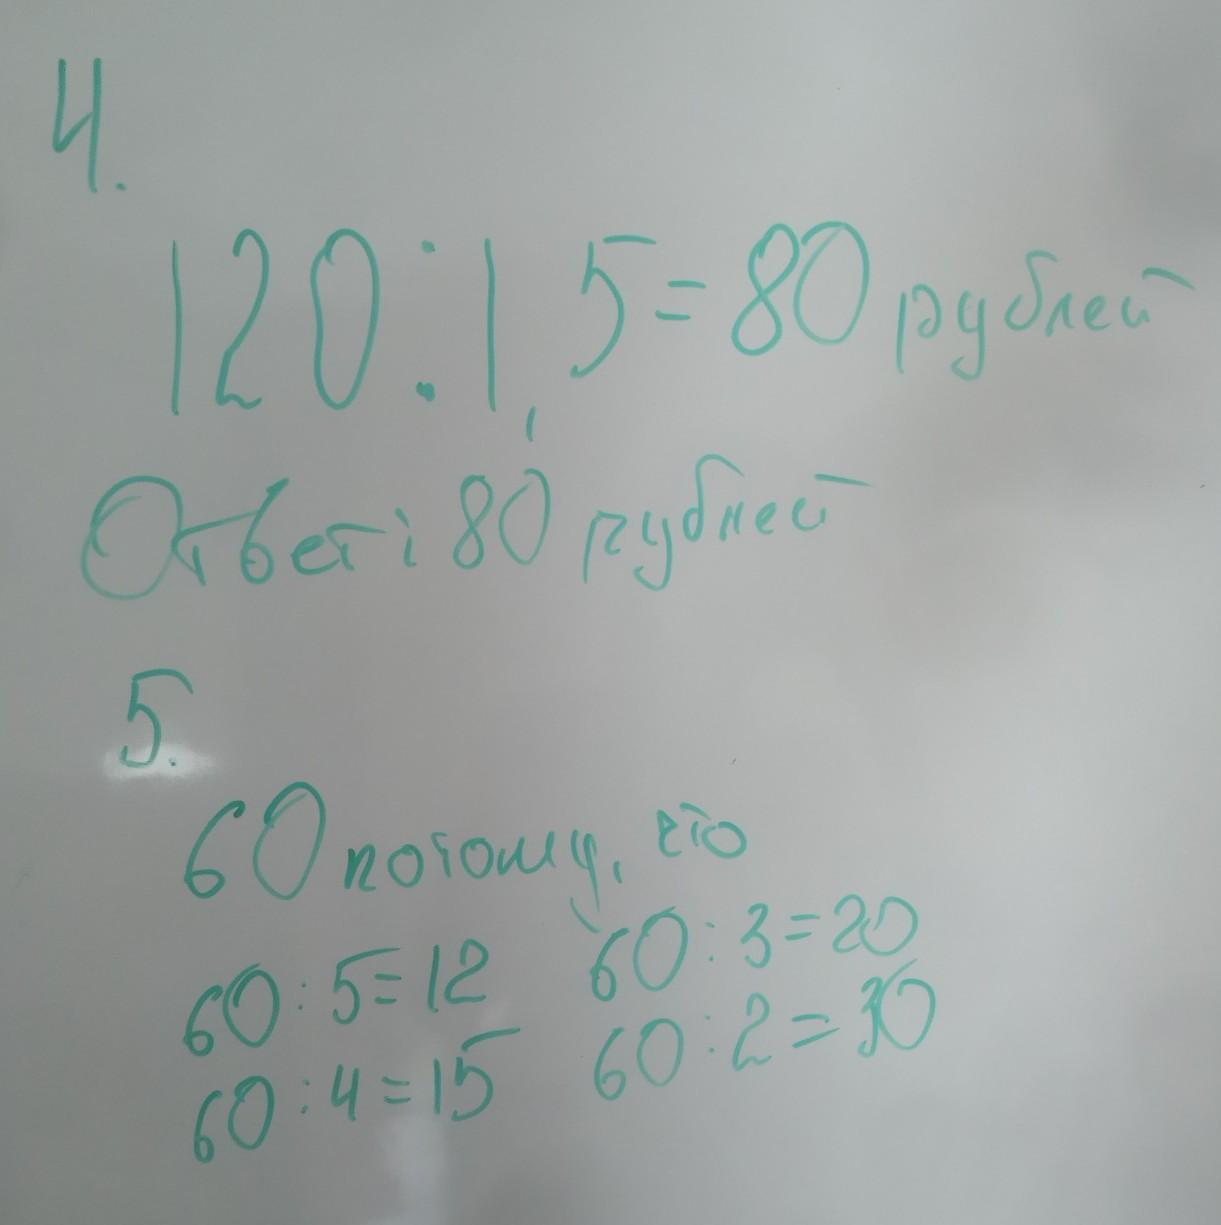 4.
120:1,5=80 рублей
Ответ: 80 рублей
5.
60 потому, что
60:5=12 60:3=20
60:4=15 60:2=30